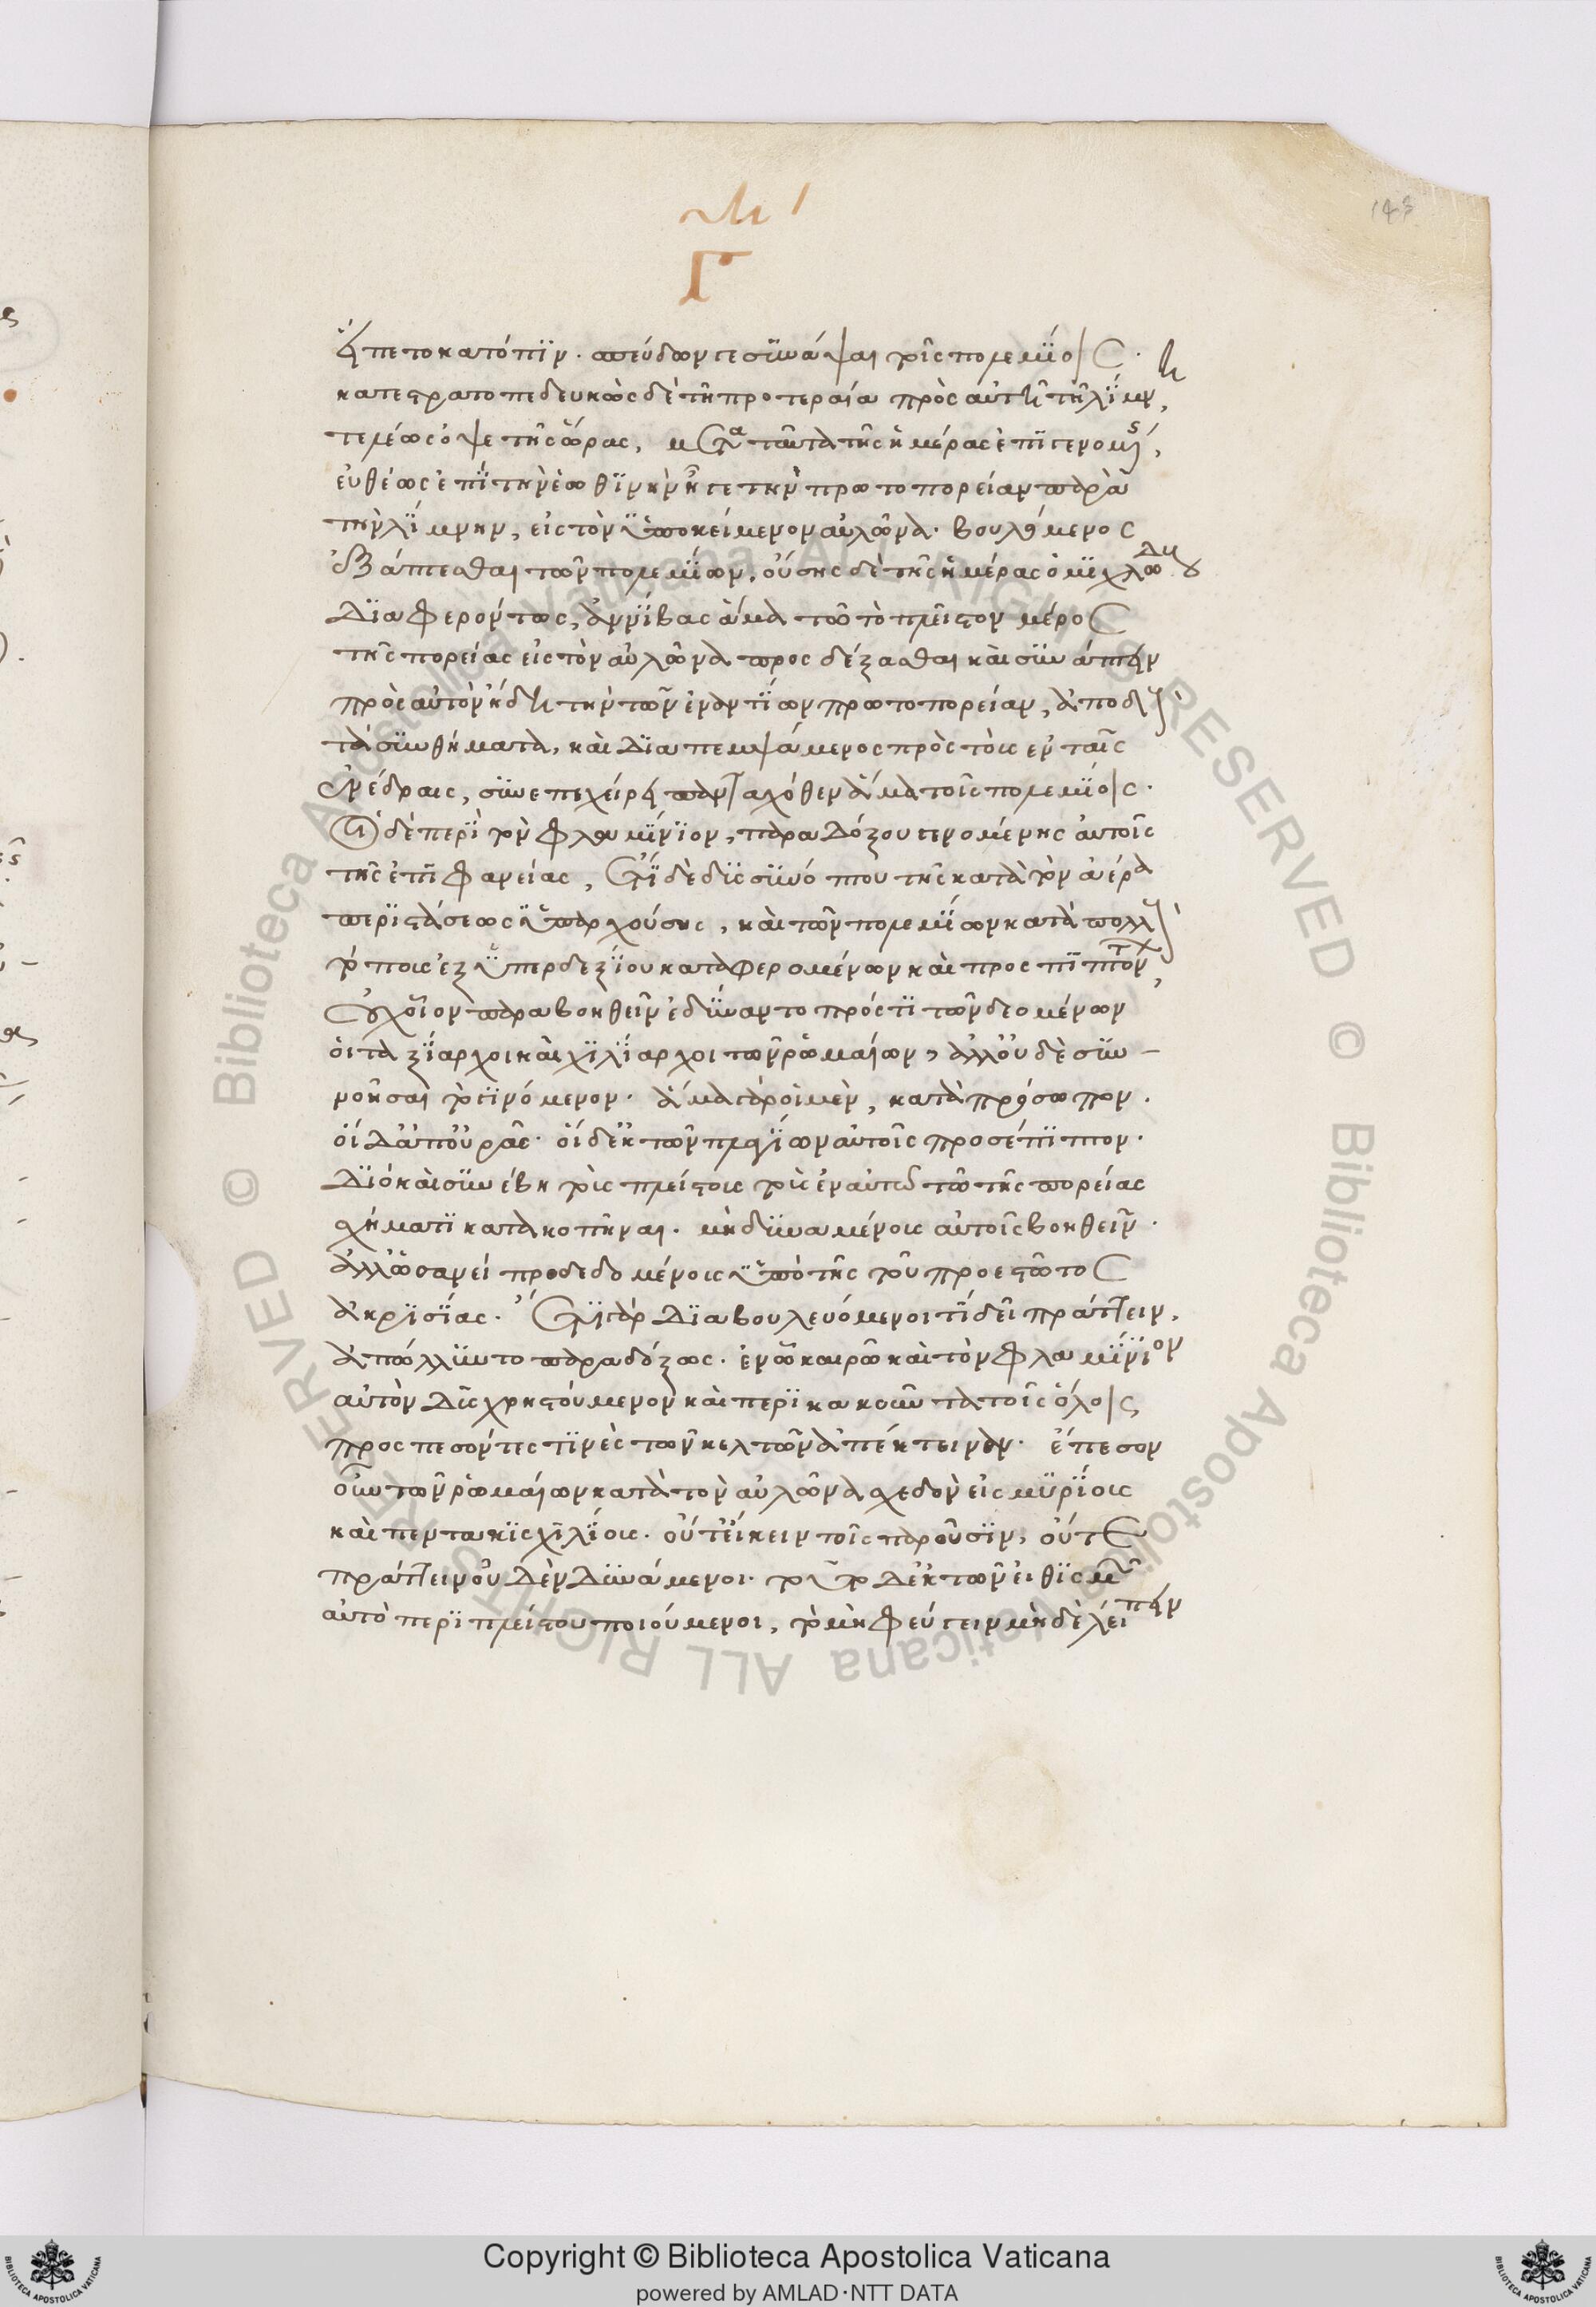 μ
Γ
εἵπετο κατόπϊν · σπεύδων τε συνάψαι τοῖς πολεμίοις ·
κατεστρατοπεδευκὼς δὲ τῆ προτεραία πρὸς αὐτῆ τῆ λΐμνη,
τελέως ὀψε τῆς ὥρας, μετα ταῦτα τῆς ἡμέρας ἐπϊγενομένης,
εὐθέως ἐπῒ τὴν ἑωθϊνὴν ἦγε τὴν πρωτοπορείαν παρὰ
τὴν λΐμνην, εἰς τὸν ὑποκείμενον αὐλῶνα · βουλόμενος
ἐξάπτεσθαι τῶν πολεμΐων, οὔσης δὲ τῆς ἡμέρας ὀμϊχλώδους
Δϊαφερόντως, ἀννΐβας ἅμα τῶ τὸ πλεῖστον μέρος
τῆς πορείας εἰς τὸν αὐλῶνα προσδέξασθαι καὶ συνάπτειν
πρὸς αὐτὸν ἤδη τὴν τῶν ἐναντΐων πρωτοπορείαν, ἀποδοὺς
τὰ συνθήματα, καὶ Δϊαπεμψάμενος πρὸς τοὺς ἐν ταῖς
ἐνέδραις, συνεπεχείρει πανταχόθεν ἅμα τοῖς πολεμίοις ·
οἱ δὲ περῒ τὸν φλαμΐνϊον, παραδόξου γενομένης αὐτοῖς
τῆς ἐπϊφανείας, ἔτϊ δὲ δυσσυνόπτου τῆς κατὰ τὸν ἀέρα
περϊστάσεως ὑπαρχούσης, καὶ τῶν πολεμΐων κατὰ πολλοὺς
τόπους ἐξ ὑπερδεξΐου καταφερομένων καὶ προσπϊπτόντων,
οὐχ οἷον παραβοηθεῖν ἐδύναντο πρός τϊ τῶν δεομένων
οἱ ταξΐαρχοι καὶ χϊλΐαρχοι τῶν ῥωμαίων, ἀλλ' οὐδὲ συν–
νοῆσαι τὸ γϊνόμενον · ἅμα γὰρ οἱ μὲν, κατὰ πρόσωπον ·
οἱ Δ' ἀπ' οὐρᾶς · οἱ δ' ἐκ τῶν πλαγΐων αὐτοῖς προσέπϊπτον ·
Δϊὸ καὶ συνέβη τοὺς πλείστους ἐν αὐτῶ τῶ τῆς πορείας
σχήματϊ κατακοπῆναι · μὴ δυναμένους αὐτοῖς βοηθεῖν ·
ἀλλ' ὡσανεὶ προδεδομένους ὑπὸ τῆς τοῦ προεστῶτος
ἀκρϊσΐας · ἔτϊ γὰρ Δϊαβουλευόμενοι τΐ δεῖ πράττειν,
ἀπώλλυντο παραδόξως · ἐν ὧ καιρῶ καὶ τὸν φλαμΐνιον
αὐτὸν Δυσχρηστούμενον καὶ περϊκακοῦντα τοῖς ὅλοις
προσπεσόντες τϊνὲς τῶν κελτῶν ἀπέκτειναν · ἔπεσον
οὖν τῶν ῥωμαίων κατὰ τὸν αὐλῶνα σχεδὸν εἰς μυρΐους
καὶ πεντακϊσχϊλΐους · οὔτ' εἴκειν τοῖς παροῦσϊν, οὔτε
πράττειν οὐΔὲν Δυνάμενοι · τοῦτο Δ' ἐκ τῶν ἐθϊσμῶν
αὐτὸ περϊ πλείστου ποιούμενοι, τὸ μὴ φεύγειν μὴ δὲ λείπειν